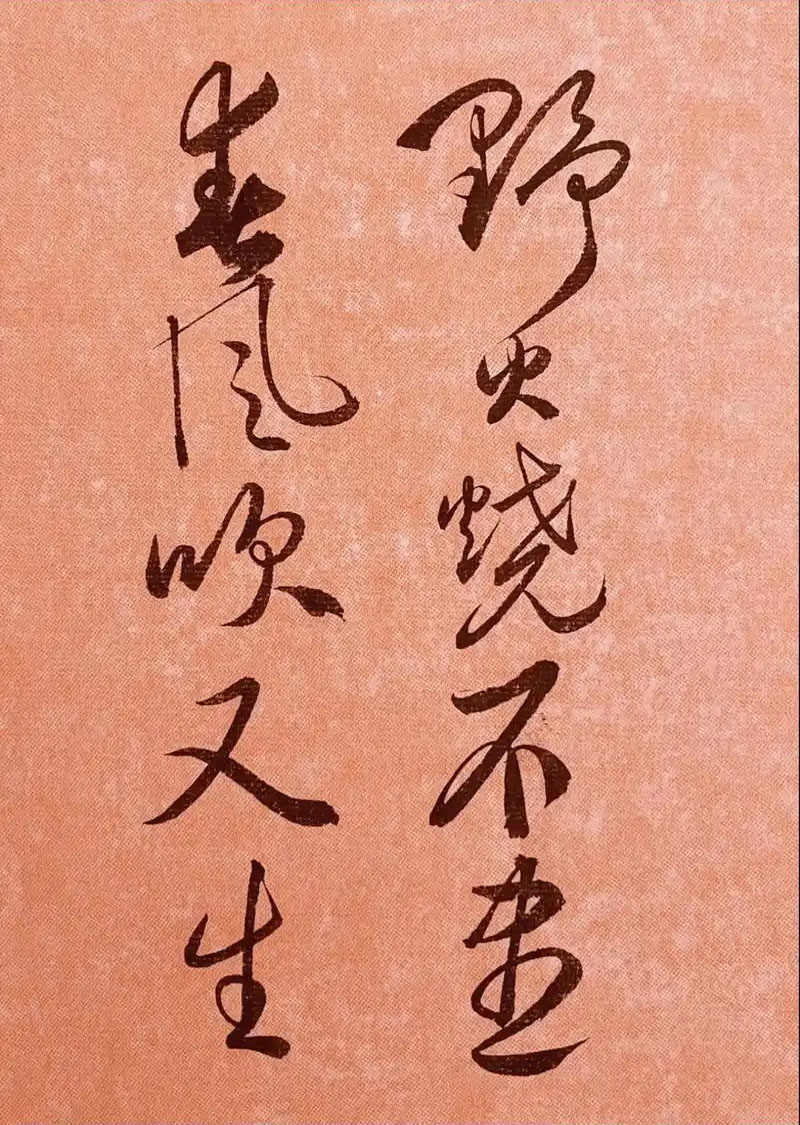 野火烧不盡
春风吹又生